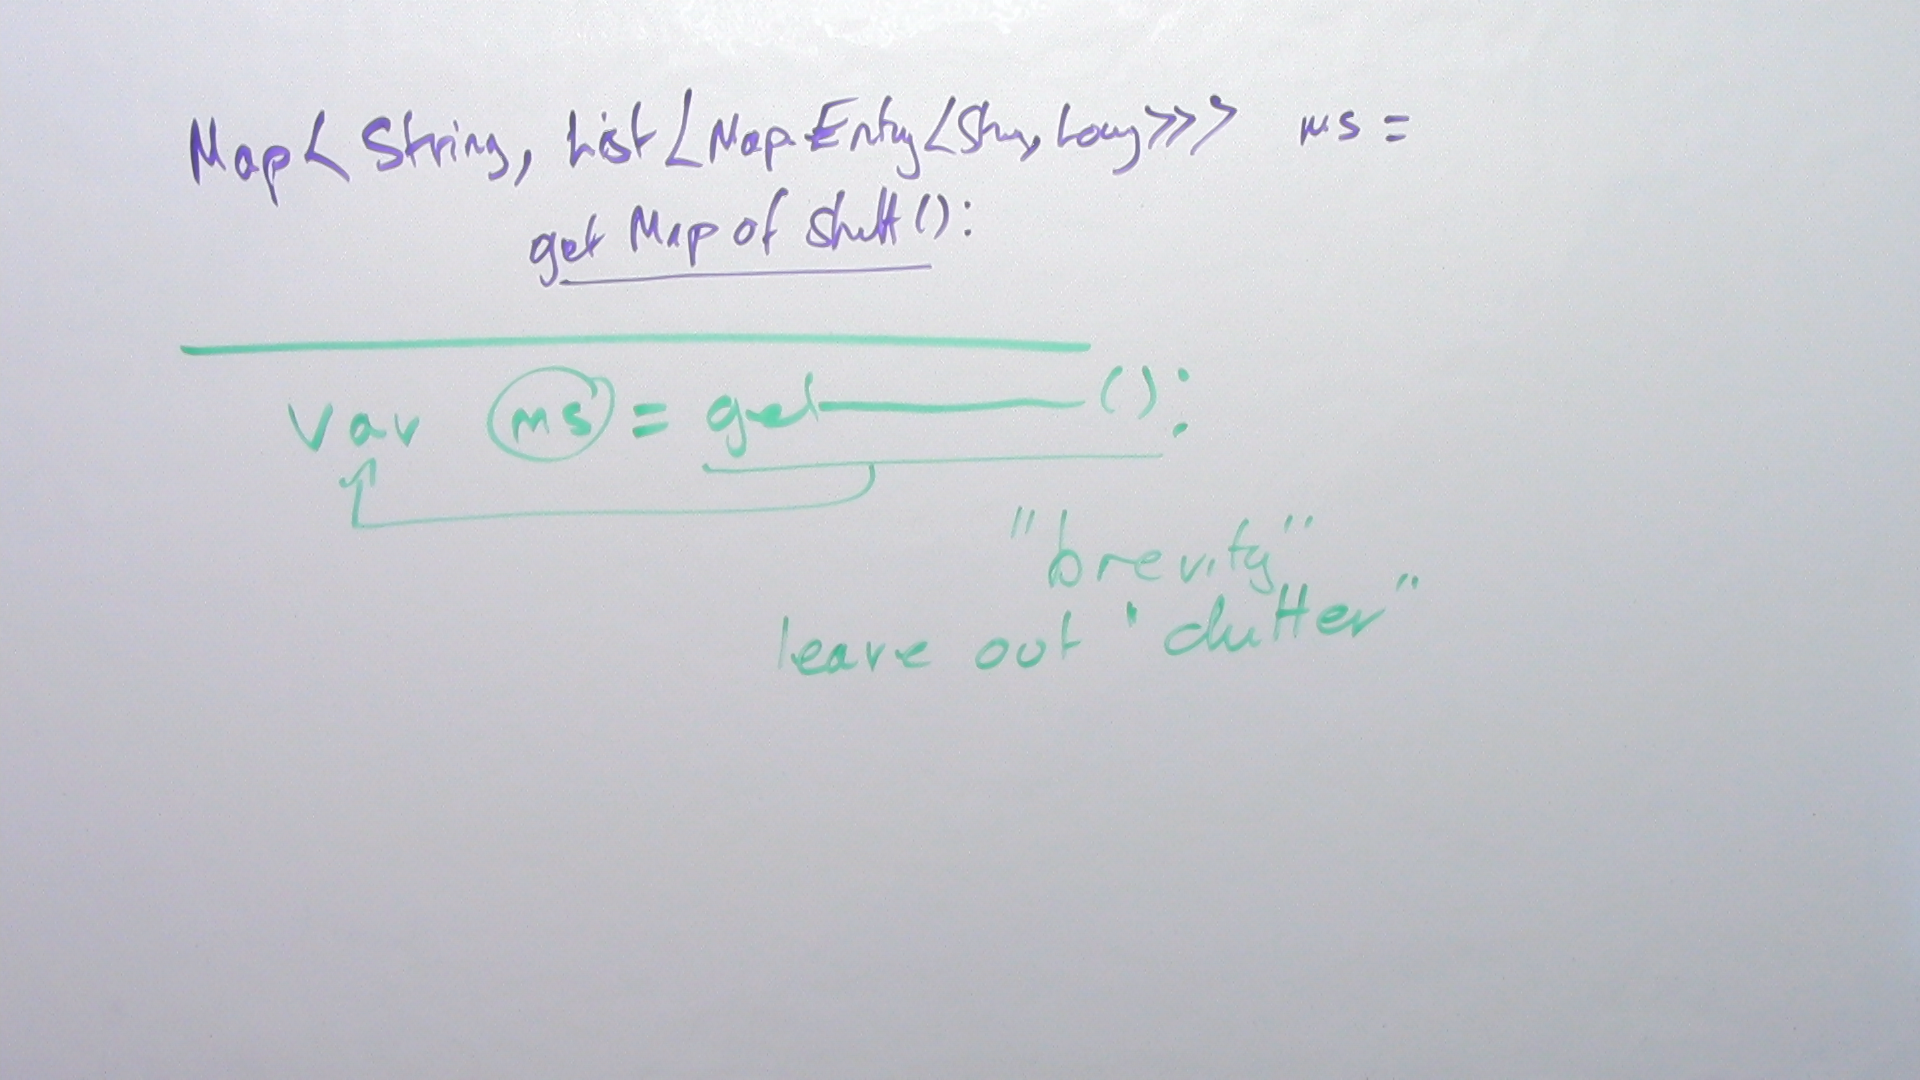 Map< String, List<Map.Entry<Str, Long>>> ms =
get Map of Stuff():
var ms = get ():
"brevity"
leave out 'clutter"